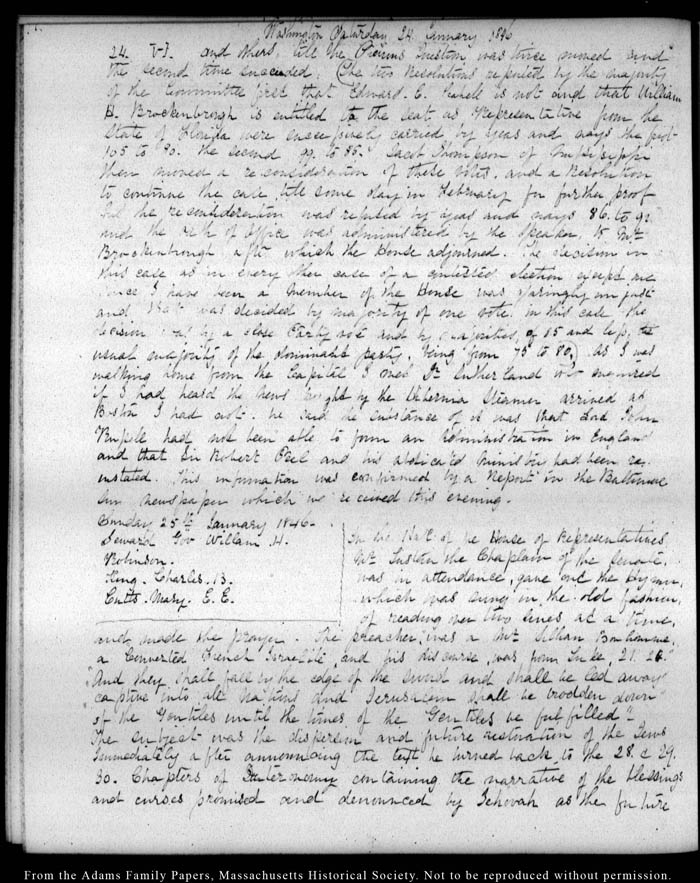 Washington Saturday 24. January 1846
24. VI. and others, till the Previous Question was twice moved and
the second time succeeded. The two Resolutions reported by the majority
of the Committee first that Edward. C. Cabell is not and that William
H. Brockenbrough is entitled to the seat as Representative from the
State of Florida were successively carried by yeas and nays the first
105 to 80. the second 99. to 85. Jacob Thompson of Mississippi
then moved a reconsideration of these votes. and a Resolution
to continue the case till some day in February for further proof
but the reconsideration was refused by yeas and nays 86. to 92
and the oath of office was administered by the Speaker to Mr
Brockenbrough after which the House adjourned. The decision in
this case as in every other case of a contested election except one
since I have been a member of the House was
and that was decided by majority of one vote. in this case the
decision was by a close Party vote and by majorities of 15 and less, the
usual majority of the dominant party, being from 75 to 80. As I was
walking home from the Capitol I met Dr Sutherland who enquired
if I had heard the news brought by the Hibernia Steamer arrived at
Boston I had not. he said the substance of it was that Lord John
Russell had not been able to form an Administration in England
and that Sir Robert Peel and his abdicated Ministry had been re
instated. This information was confirmed by a Report in the Baltimore
Sun newspaper which we received this evening.
Sunday 25th January 1846.
Seward Gov William H.
Robinson.
King. Charles. B.
Cutts. Mary. E. E.
In the Hall of the House of Representatives
Mr Tuston the Chaplain of the Senate.
was in attendance, gave out the Hymn,
which was sung in the old fashion,
of reading over two lines at a time,
and made the prayer. The preacher was a Mr Bonhomme,
a Converted French Israelite, and his discourse, was from Luke. 21. 24.
"And they shall fall by the edge of the sword and shall be led away
captive into all Nations and Jerusalem shall be trodden down
of the Gentiles until the times of the Gentiles be fulfilled"
The subject was the dispersion and future restoration of the Jews
Immediately after announcing the text, he turned back to the 28. & 29.
30. Chapters of Deuteronomy containing the narrative of the blessings
and curses promised and denounced by Jehovah as the future
From the Adams Family Papers, Massachusetts Historical Society. Not to be reproduced without permission.